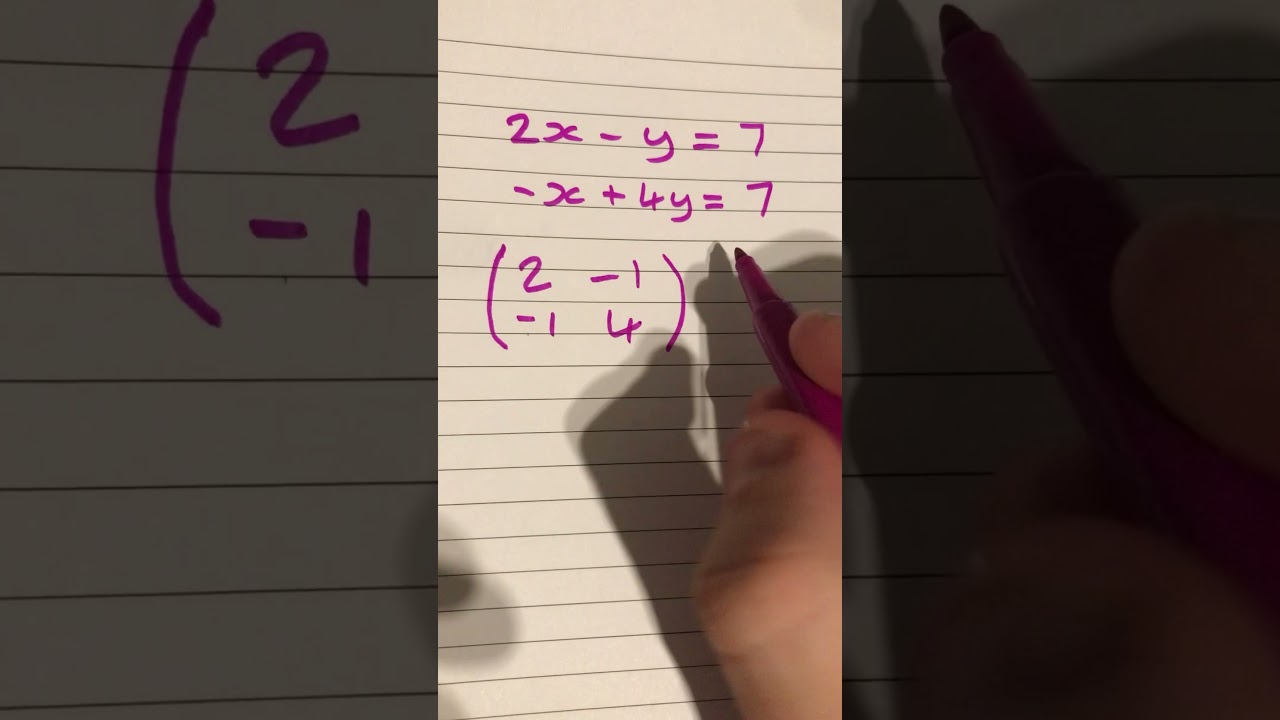 2x - y = 7
-x + 4y = 7
(2 -1
-1 4)